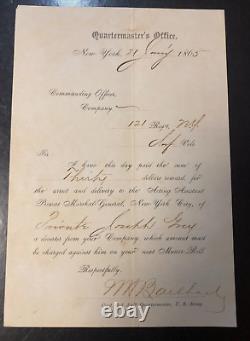 Quartermaster's Office,
New York, 21 1865
Commanding Officer,
Company
121 Regt. N.Y.
Inf Vols
Sir:
I have this day paid the sum of
Thirty dollars reward, for
the arrest and delivery to the Acting Assistant
Provost Marshal-General, New York City, of
Private Joseph Grey
a deserter from your Company which amount must
be charged against him on your next Muster Roll
Respectfully,
Quartermaster, U. S. Army